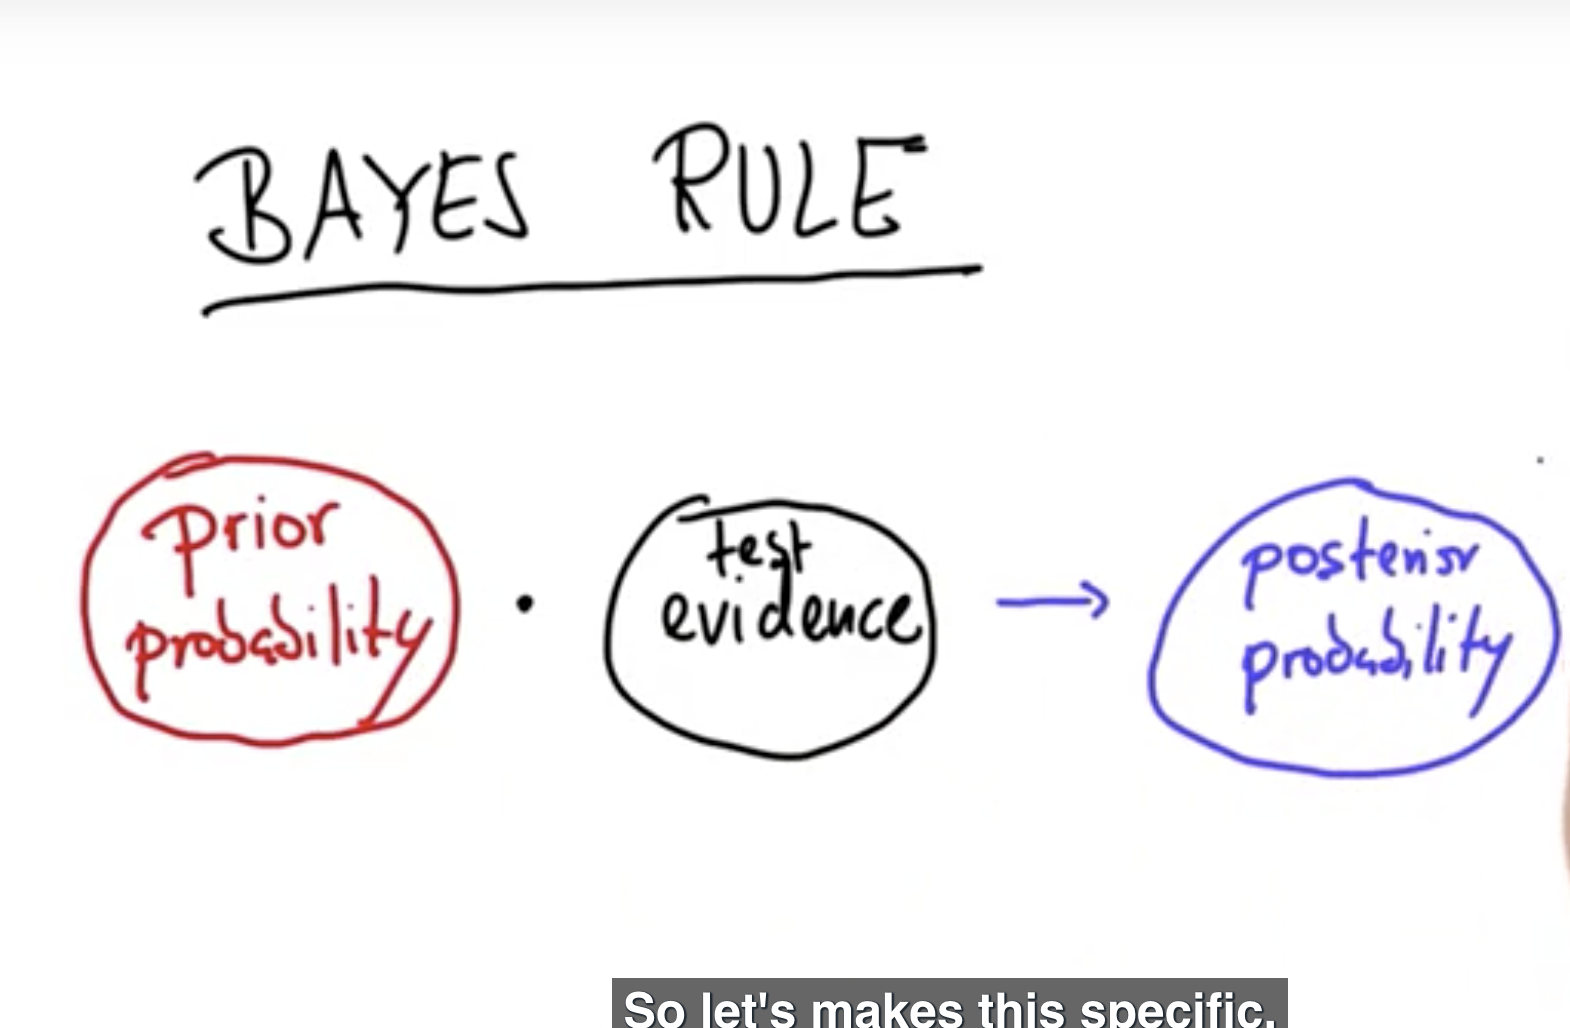 BAYES RULE
prior
probability
·
test
evidence
→
posterior
probability
So let's makes this specific.